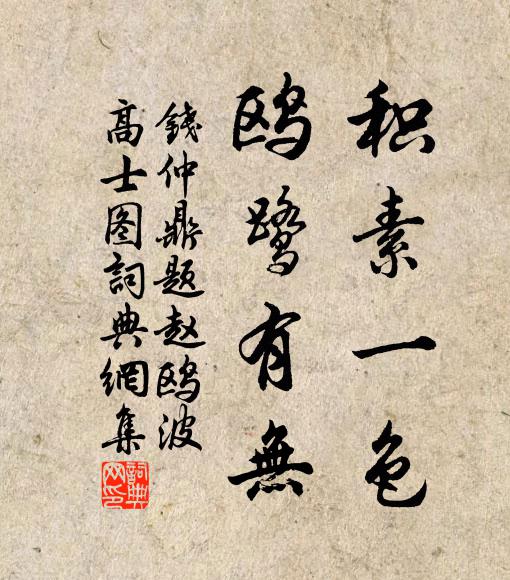 积素一色
鸥鹭有無
錢仲鼎题赵鸥波
高士图詞典網集
詞典网印